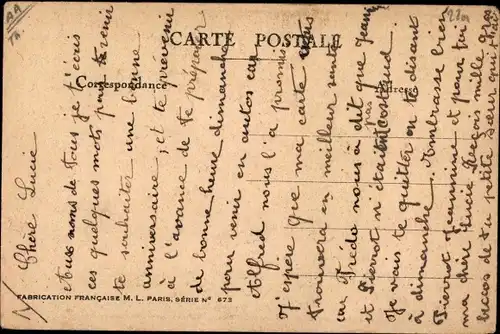 CARTE POSTALE
Correspondance
Adresse
Chère Lucie
Aux noms de tous je t'écris
ces quelques mots pour te venir
te souhaiter une bonne
anniversaire, et te prévenir
à l'avance de te préparer
de bonne heure dimanche
pour venir en autos car
Alfred nous l'a promis
J'espère que ma carte vous
trouvera en meilleur santé
car Fredo nous à dit que Jeannine
et Pierrot n'était pas costaud
Je vais te quitter en te disant
à dimanche. Embrasse bien
Pierrot et Jeannine et pour toi
ma chère Lucie reçois mille gros
becos de ta petite sœur qui
FABRICATION FRANÇAISE M. L. PARIS, SÉRIE N° 673